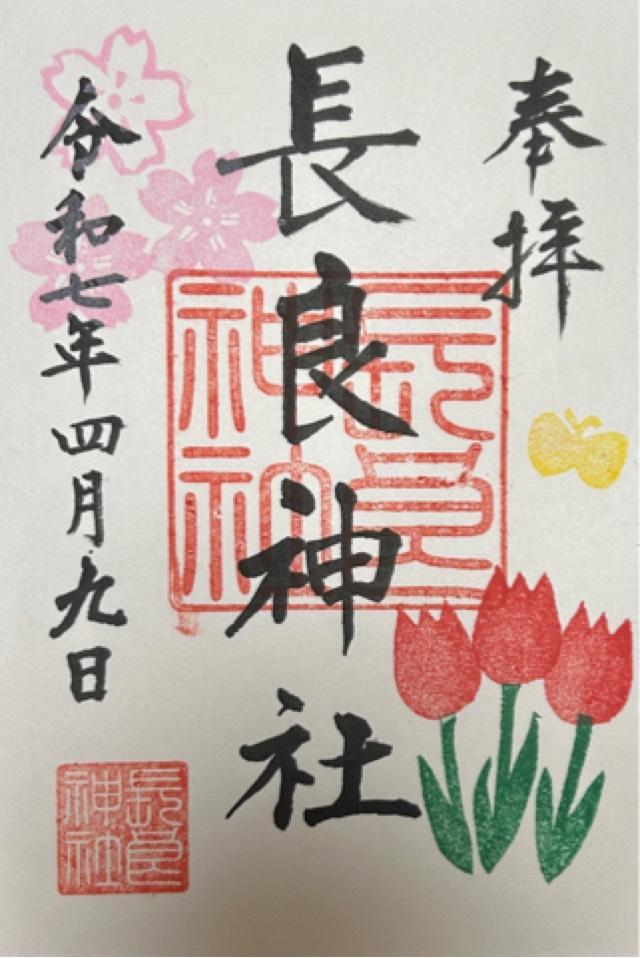 奉拝
長良神社
令和七年四月九日
長良神社
長良神社